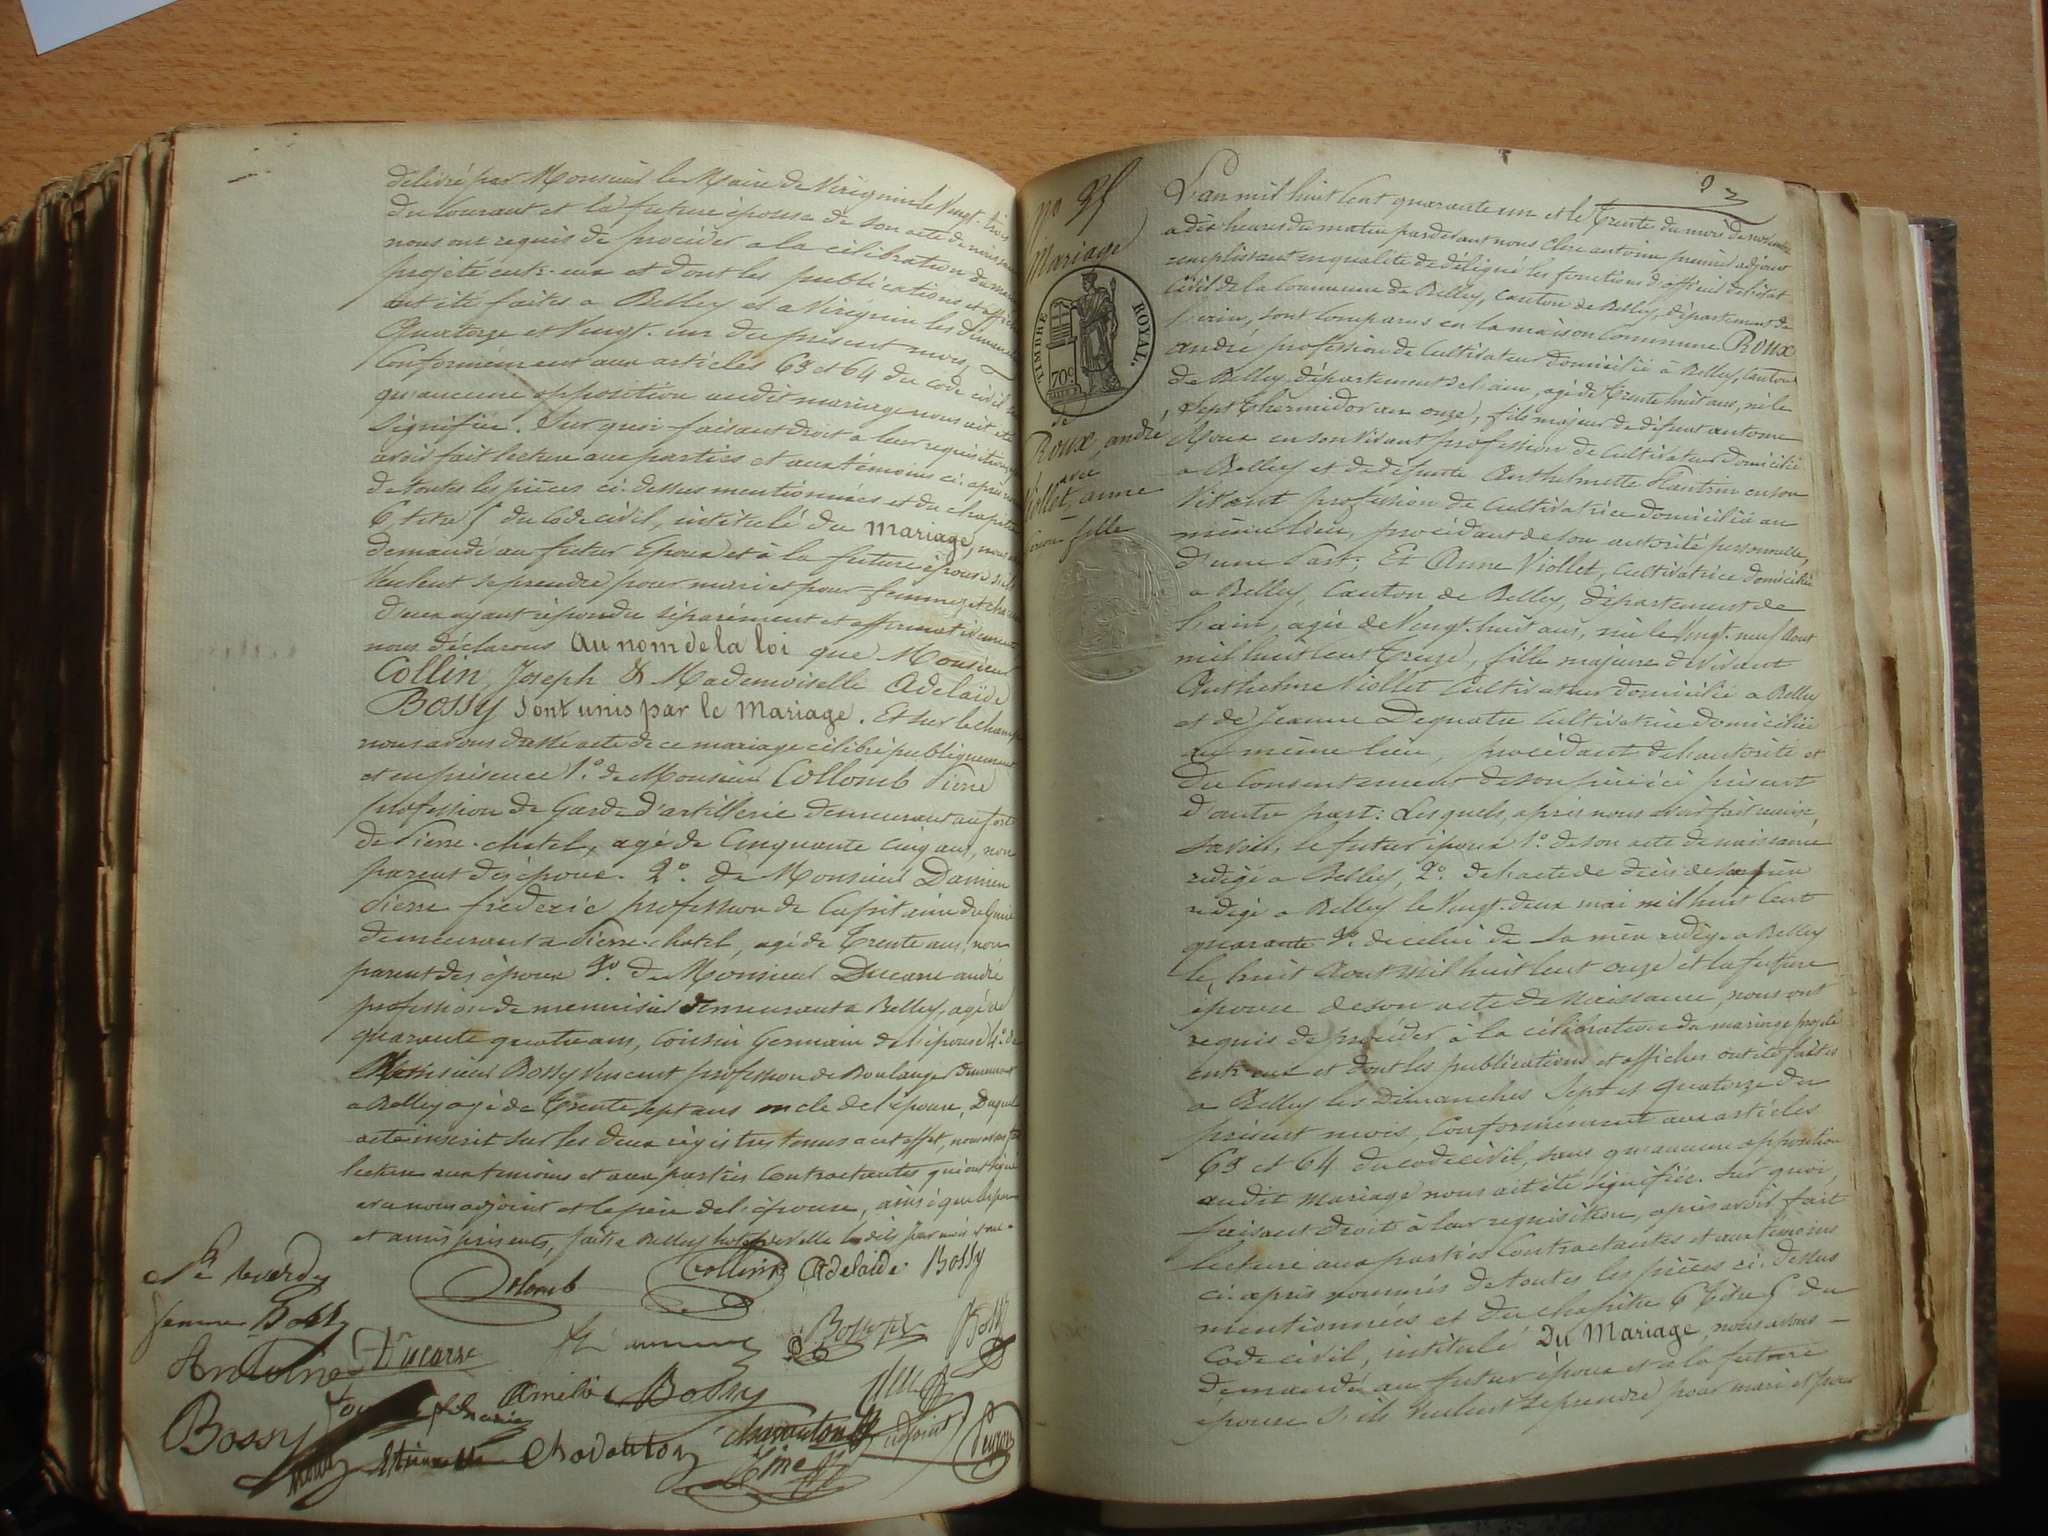 délivré par Monsieur le Maire de Virignin le Vingt-trois
du Courant et la future épouse de son acte de naissance
nous ont requis de procéder a la célébration du mariage
projeté entr-eux et dont les publications et affiches
ont été faites a Belley et a Virignin les dimanches
Quatorze et Vingt-un du présent mois,
Conformément aux articles 63 et 64 du code civil
qu'aucune opposition audit mariage nous ait été
signifiée. Sur quoi faisant droit a leur requisition
avoir fait lecture aux parties et aux témoins ci-après
de toutes les pièces ci-dessus mentionnées et du chapitre
6 titre 5 du Code civil, intitulé du Mariage, nous
demandé au futur époux et à la future épouse s'ils
veulent se prendre pour mari et pour femme, et chacun
d'eux ayant répondu séparément et affirmativement
nous déclarons Au nom de la loi que Monsieur
Collin, Joseph & Mademoiselle Adelaïde
Bossy sont unis par le Mariage. Et sur le champ
nous avons dressé acte de ce mariage célébré publiquement
et en présence 1.° de Monsieur Collomb Pierre
profession de Garde d'artillerie demeurant au fort
de Pierre-chatel, agé de Cinquante cinq ans, non
parent des époux. 2.° de Monsieur Damien
Pierre frédéric profession de Capitaine du Génie
demeurant a Pierre-chatel, agé de Trente ans, non
parent des époux 3.° de Monsieur Ducarre andré
profession de menuisier demeurant a Belley, agé de
quarante quatre ans, Cousin Germain de l'épouse 4.° de
Monsieur Bossy Vincent profession de Boulanger demeurant
a Belley agé de Trente sept ans oncle de l'épouse, Duquel
acte inscrit sur les deux régistres tenus a cet effet, nous avons fait
lecture aux temoins et aux parties Contractantes qui ont signé
avec nous adjoint et le père de l'épouse, ainsi que les parens
et amis présents, fait a Belley hotel de ville les dits jour mois et an.
Collomb Collin Adelaïde Bossy
femme Bossy
Antoine Ducarre Bossy
Bossy Amélie Bossy
Chavanton adjoint
N° 95
Mariage
TIMBRE ROYAL.
70c
de
Roux, andré
avec
Viollet, anne
fille
93
L'an mil huit Cent quarante un et le Trente du mois de novembre
a dix heures du matin pardevant nous Clerc antoine premier adjoint
remplissant en qualité de délégué les fonctions d'officier de l'état
Civil de la Commune de Belley, Canton de Belley, département de
l'ain, sont Comparus en la maison Commune Roux
andré profession de Cultivateur domicilié à Belley, Canton
de Belley, département de l'ain, agé de Trente huit ans, né le
sept Thérmidor an onze, fils majeur de défunt antoine
Roux en son vivant profession de Cultivateur domicilié
a Belley et de défunte Anthelmette Flantin en son
Vivant profession de Cultivatrice domiciliée au
même lieu, procédant de son autorité personnelle,
d'une Part; Et Anne Viollet, Cultivatrice domiciliée
a Belley, Canton de Belley, département de
l'ain, agée de Vingt-huit ans, née le Vingt-neuf Aout
mil huit Cent Treize, fille majeure de Vivant
Anthelme Viollet Cultivateur domicilié a Belley
et de Jeanne Dequatre Cultivatrice domiciliée
au même lieu, procédant de l'autorité et
du Consentement de son père ici présent
d'autre part: Lesquels, après nous avoir fait remise,
savoir, le futur époux 1.° de son acte de naissance
redigé a Belley, 2.° de l'acte de décès de son père
redigé a Belley le Vingt-deux mai mil huit Cent
quarante 3.° de celui de sa mère redigé a Belley
le huit Aout Mil huit Cent onze et la future
épouse de son acte de Naissance, nous ont
requis de procéder à la célébration du mariage projeté
entr-eux et dont les publications et affiches ont été faites
a Belley les Dimanches Sept et quatorze du
présent mois, Conformément aux articles
63 et 64 du code civil, sans qu'aucune opposition
audit mariage nous ait été signifiée. Sur quoi,
faisant droit à leur requisition, après avoir fait
lecture aux parties Contractantes et aux témoins
ci-après nommés de toutes les pièces ci-dessus
mentionnées et du chapitre 6 Titre 5 du
Code civil, intitulé Du Mariage, nous avons
demandé au futur époux et à la future
épouse s'ils veulent se prendre pour mari et pour